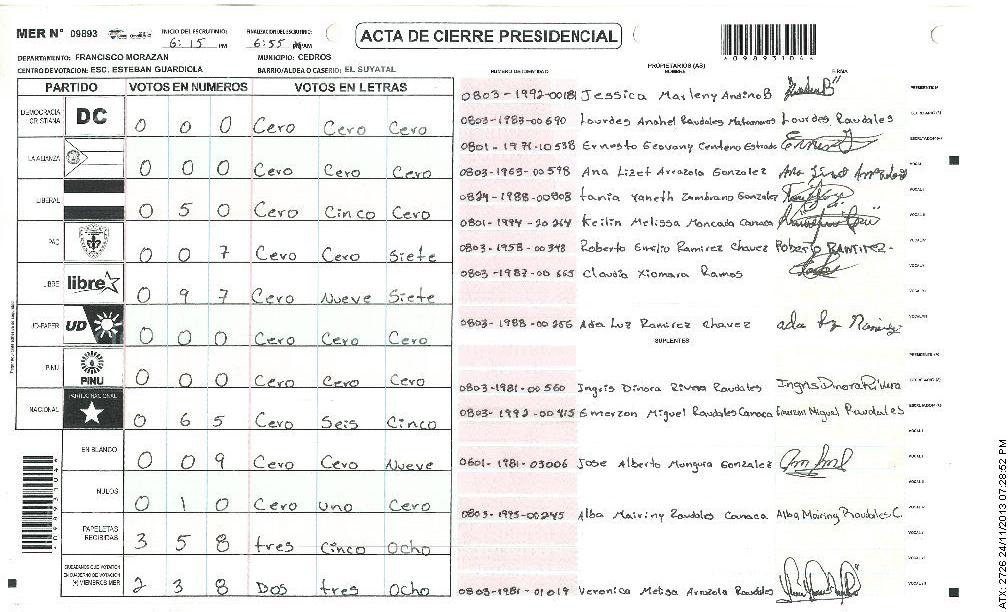 MER N° 09893 INICIO DEL ESCRUTINIO: 6:15 PM FINALIZACION DEL ESCRUTINIO: 6:55 PM/AM ACTA DE CIERRE PRESIDENCIAL *09893104*
DEPARTAMENTO: FRANCISCO MORAZAN MUNICIPIO: CEDROS
CENTRO DE VOTACION: ESC. ESTEBAN GUARDIOLA BARRIO/ALDEA O CASERIO: EL SUYATAL
PARTIDO VOTOS EN NUMEROS VOTOS EN LETRAS
DEMOCRACIA CRISTIANA DC 0 0 0 Cero Cero Cero
LA ALIANZA 0 0 0 Cero Cero Cero
LIBERAL 0 5 0 Cero Cinco Cero
PAC 0 0 7 Cero Cero Siete
LIBRE libre 0 9 7 Cero Nueve Siete
UD-FAPER UD 0 0 0 Cero Cero Cero
PINU PINU 0 0 0 Cero Cero Cero
NACIONAL PARTIDO NACIONAL 0 6 5 Cero Seis Cinco
EN BLANCO 0 0 9 Cero Cero Nueve
NULOS 0 1 0 Cero Uno Cero
PAPELETAS RECIBIDAS 3 5 8 tres Cinco Ocho
CIUDADANOS QUE VOTARON EN CUADERNO DE VOTACION (+) MIEMBROS MER 2 3 8 Dos tres Ocho
NUMERO DE IDENTIDAD PROPIETARIOS (AS) NOMBRE FIRMA
0803-1992-00181 Jessica Marleny Andino B PRESIDENTE (A)
0803-1983-00690 Lourdes Anabel Raudales Matamoros Lourdes Raudales SECRETARIO (A)
0801-1971-10538 Ernesto Geovany Centeno Estrada ESCRUTADOR (A)
0803-1963-00598 Ana Lizet Arrazola Gonzalez VOCAL I
0824-1988-00808 tania Yaneth Zambrano Gonzalez
0801-1994-20264 Keilin Melissa Moncada Canaca
0803-1958-00348 Roberto Emilio Ramirez Chavez Roberto RAMIREZ
0803-1987-00665 Claudia Xiomara Ramos
0803-1988-00256 Ada Luz Ramirez Chavez ada luz Ramirez
SUPLENTES
PRESIDENTE (A)
0803-1981-00560 Ingris Dinora Rivera Raudales Ingris Dinora Rivera SECRETARIO (A)
0803-1992-00415 Emerzon Miguel Raudales Canaca Emerzon Miguel Raudales ESCRUTADOR (A)
0601-1981-03006 Jose Alberto Mongura Gonzalez
0803-1995-00245 Alba Mairiny Raudales Canaca Alba Mairiny Raudales C.
0803-1981-01019 Veronica Meliza Arrazola Raudales
ATX: 2726 24/11/2013 07:28:52 PM